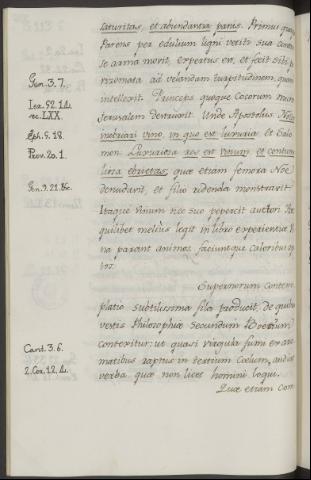 saturitas, et abundantia panis. Primus quoq
Parens per edulium ligni vetiti sua
se arma movit, expertus est, et fecit sibi
rizomata ad velandam turpitudinem, quam
Gen. 3. 7.
intellexit. Princeps quoque Cocorum mur
Jerusalem destruxit. Unde Apostolus: Noli
inebriari vino, in quo est luxuria. Et Salo
mon: Luxuriosa res est vinum, et contume
liosa ebrietas; quæ etiam femora Noë
denudavit, et filio ridenda monstravit.
Itaque vinum nec suo pepercit auctori.
quilibet melius legit in libro experientiæ
na parant animos, faciuntque caloribus
tos.
LXX.
Eph. 5. 18.
Prov. 20. 1.
Gen. 9. 21. &c.
Supernorum contem
platio subtilissima fila producit, de quibu
vestis Philosophiæ secundum Boetium
contexitur: ut quasi virgula fumi ex aro
matibus raptus in tertium Cœlum, audiat
verba quæ non licet homini loqui.
Quæ etiam com
Cant. 3. 6.
2. Cor. 12. 4.